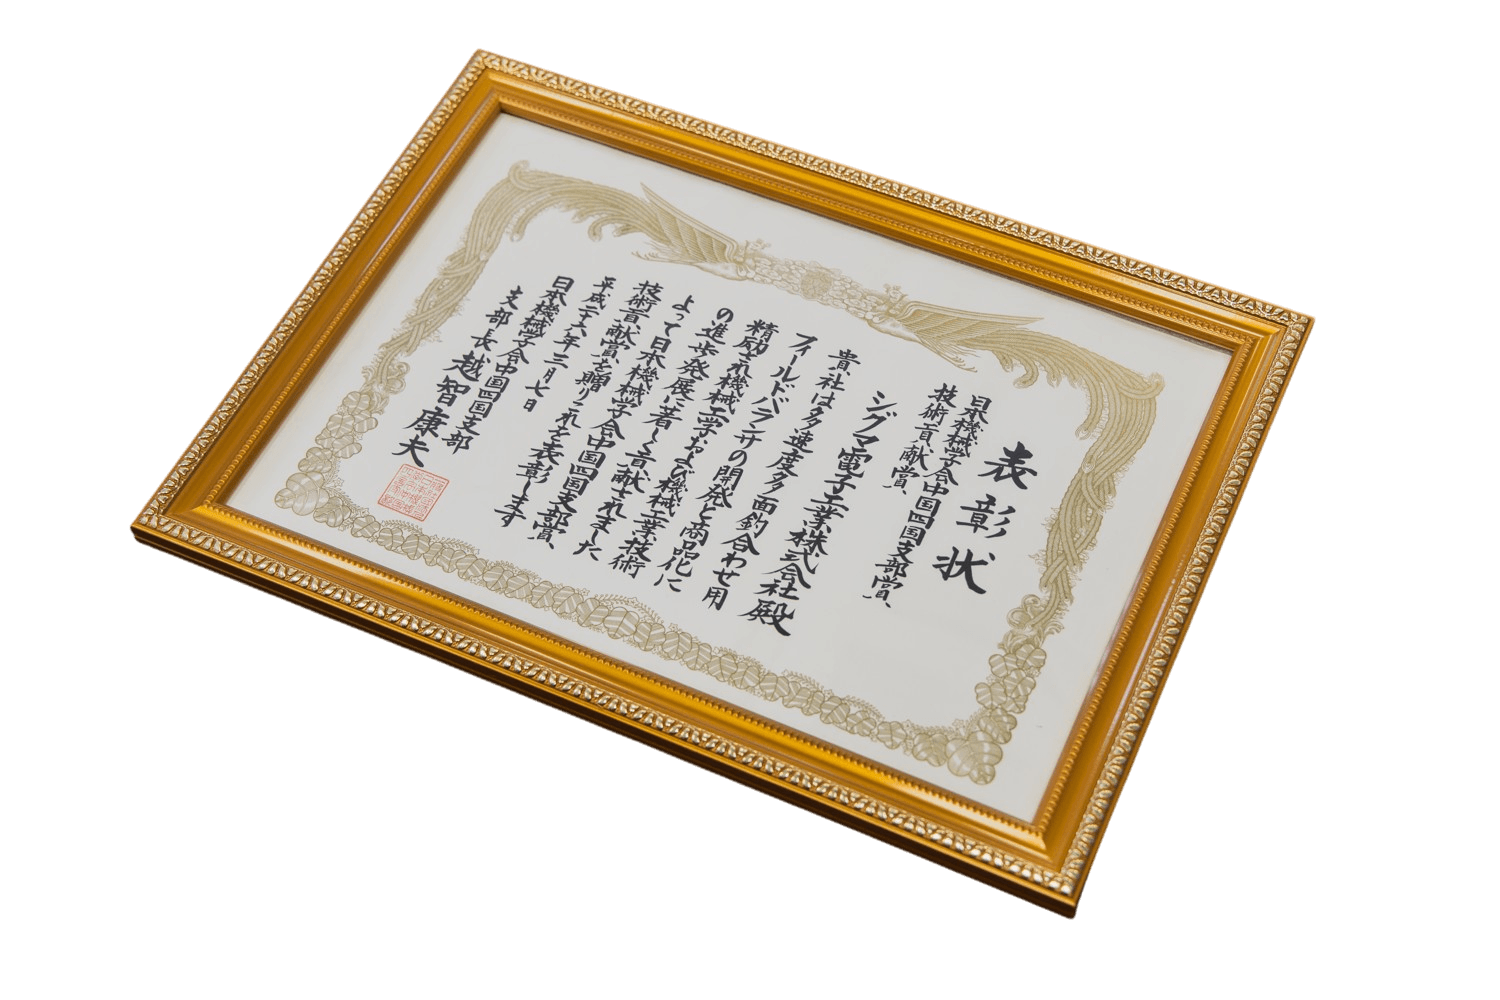 表彰状
日本機械学会中国四国支部賞、
技術貢献賞、
シグマ電子工業株式会社殿
貴社は多速度多面釣合わせ用
フィールドバランサの開発と商品化に
精励され機械工学および機械工業技術
の進歩発展に著しく貢献されました
よって日本機械学会中国四国支部賞、
技術貢献賞を贈りこれを表彰します
平成二十六年三月七日
日本機械学会中国四国支部
支部長越智康夫